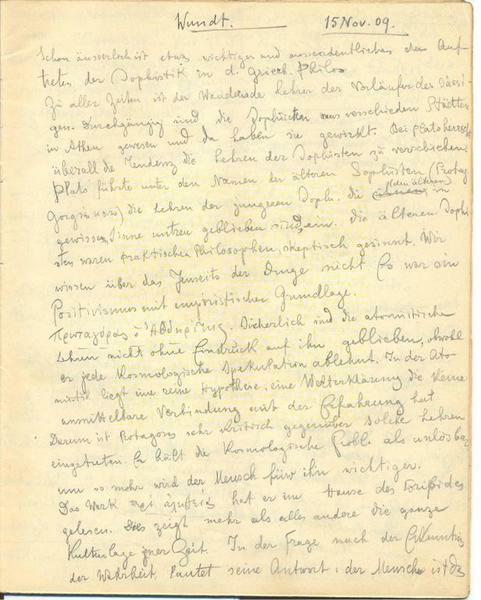 Wundt. 15 Nov. 09.
Schon äusserlich ist etwas wichtiges und ausserordentliches das Auf-
treten der Sophistik in d. griech. Philos.
Zu aller Zeiten ist der Wandernde Lehrer der Vorläufer des Sässi-
gen. Durchgängig sind die Sophisten aus verschieden Städten
in Athen gewesen und da haben sie gewirkt. Bei Plato herrscht
überall die Tendenz die Lehren der Sophisten zu verschieben
Plato führte unter den Namen der älteren Sophisten (Protag
Gorgias usw) die Lehren der jüngeren Soph. die (den älteren) in
gewissen Sinne untreu geblieben sind, ein. Die älteren Sophi
sten waren praktische Philosophen, skeptisch gesinnt. Wir
wissen über das Jenseits der Dinge nicht Es war ein
Positivismus mit empiristischer Grundlage.
Πρωταγόρας ὁ Ἀβδηρίτης. Sicherlich sind die atomistische
Lehren nicht ohne Eindruck auf ihn geblieben, obwohl
er jede Kosmologische Spekulation ablehnt. In der Ato
mistik liegt eine reine Hypothese, eine Welterklärung die keine
unmittelbare Verbindung mit der Erfahrung hat
Darum ist Protagoras sehr kritisch gegenüber solche Lehren
eingetreten. Er hält die Kosmologische Probl. als unlösbar
um so mehr wird der Mensch für ihn wichtiger.
Das Werk hat er im Hause des Eripides
gelesen. Dies zeigt mehr als alles andere die ganze
Kulturlage jener Zeit. In der Frage nach der Erkenntnis
der Wahrheit lautet seine Antwort: der Mensch ist das